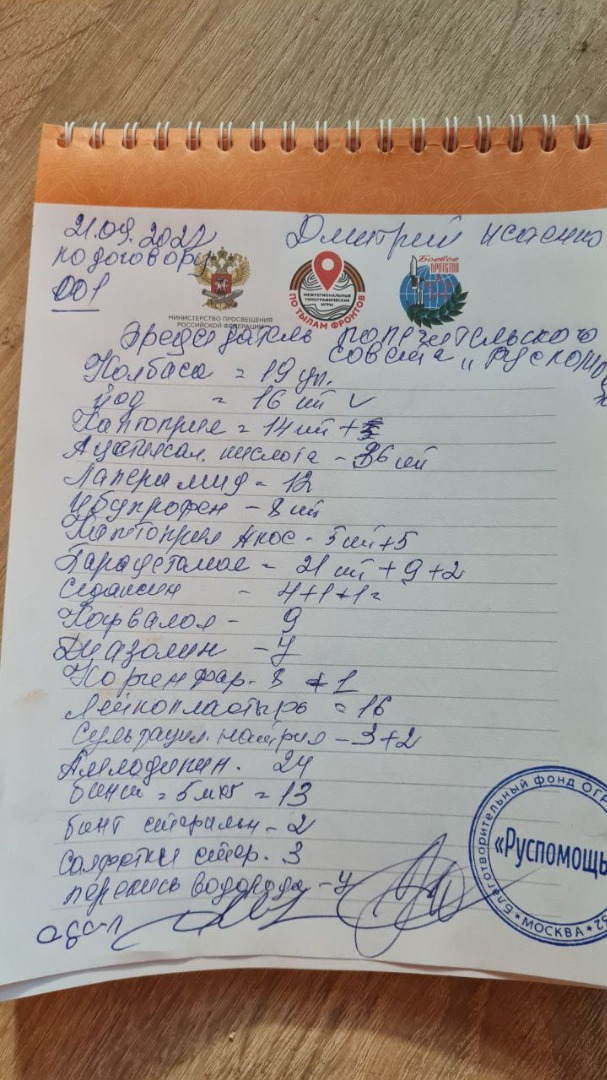 21.09.2022
Дмитрий Исаенко
по договору
001
МИНИСТЕРСТВО ПРОСВЕЩЕНИЯ
РОССИЙСКОЙ ФЕДЕРАЦИИ
МЕЖРЕГИОНАЛЬНЫЕ
ТОПОГРАФИЧЕСКИЕ
ИГРЫ
ПО ТЫЛАМ ФРОНТОВ
Боевое
БРАТСТВО
Председатель попечительского
совета "Руспомо
Колбаса = 19 уп.
Йод = 16 шт V
Каптоприл = 14 шт +
кислота - 36 шт
Лаперамид = 12
Ибупрофен - 8 шт
Каптоприл Акос - 5 шт + 5
Парацетамол = 21 шт + 9 + 2
4+1+1=
Корвалол - 9
Диазолин - 4
8 + 1
Лейкопластырь = 16
Сульфацил натрия - 3+2
Амлодипин. 24
= 13
бинт стерильн - 2
Салфетки стер. 3
перекись водорода - 4
Благотворительный фонд ОГР
«Руспомощь
МОСКВА